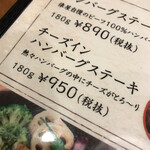 ハンバーグステーキ
俵屋自慢のビーフ100%ハンバーグ
180g ¥890(税抜)
チーズイン
ハンバーグステーキ
熱々ハンバーグの中にチーズがとろ〜り
180g ¥950(税抜)